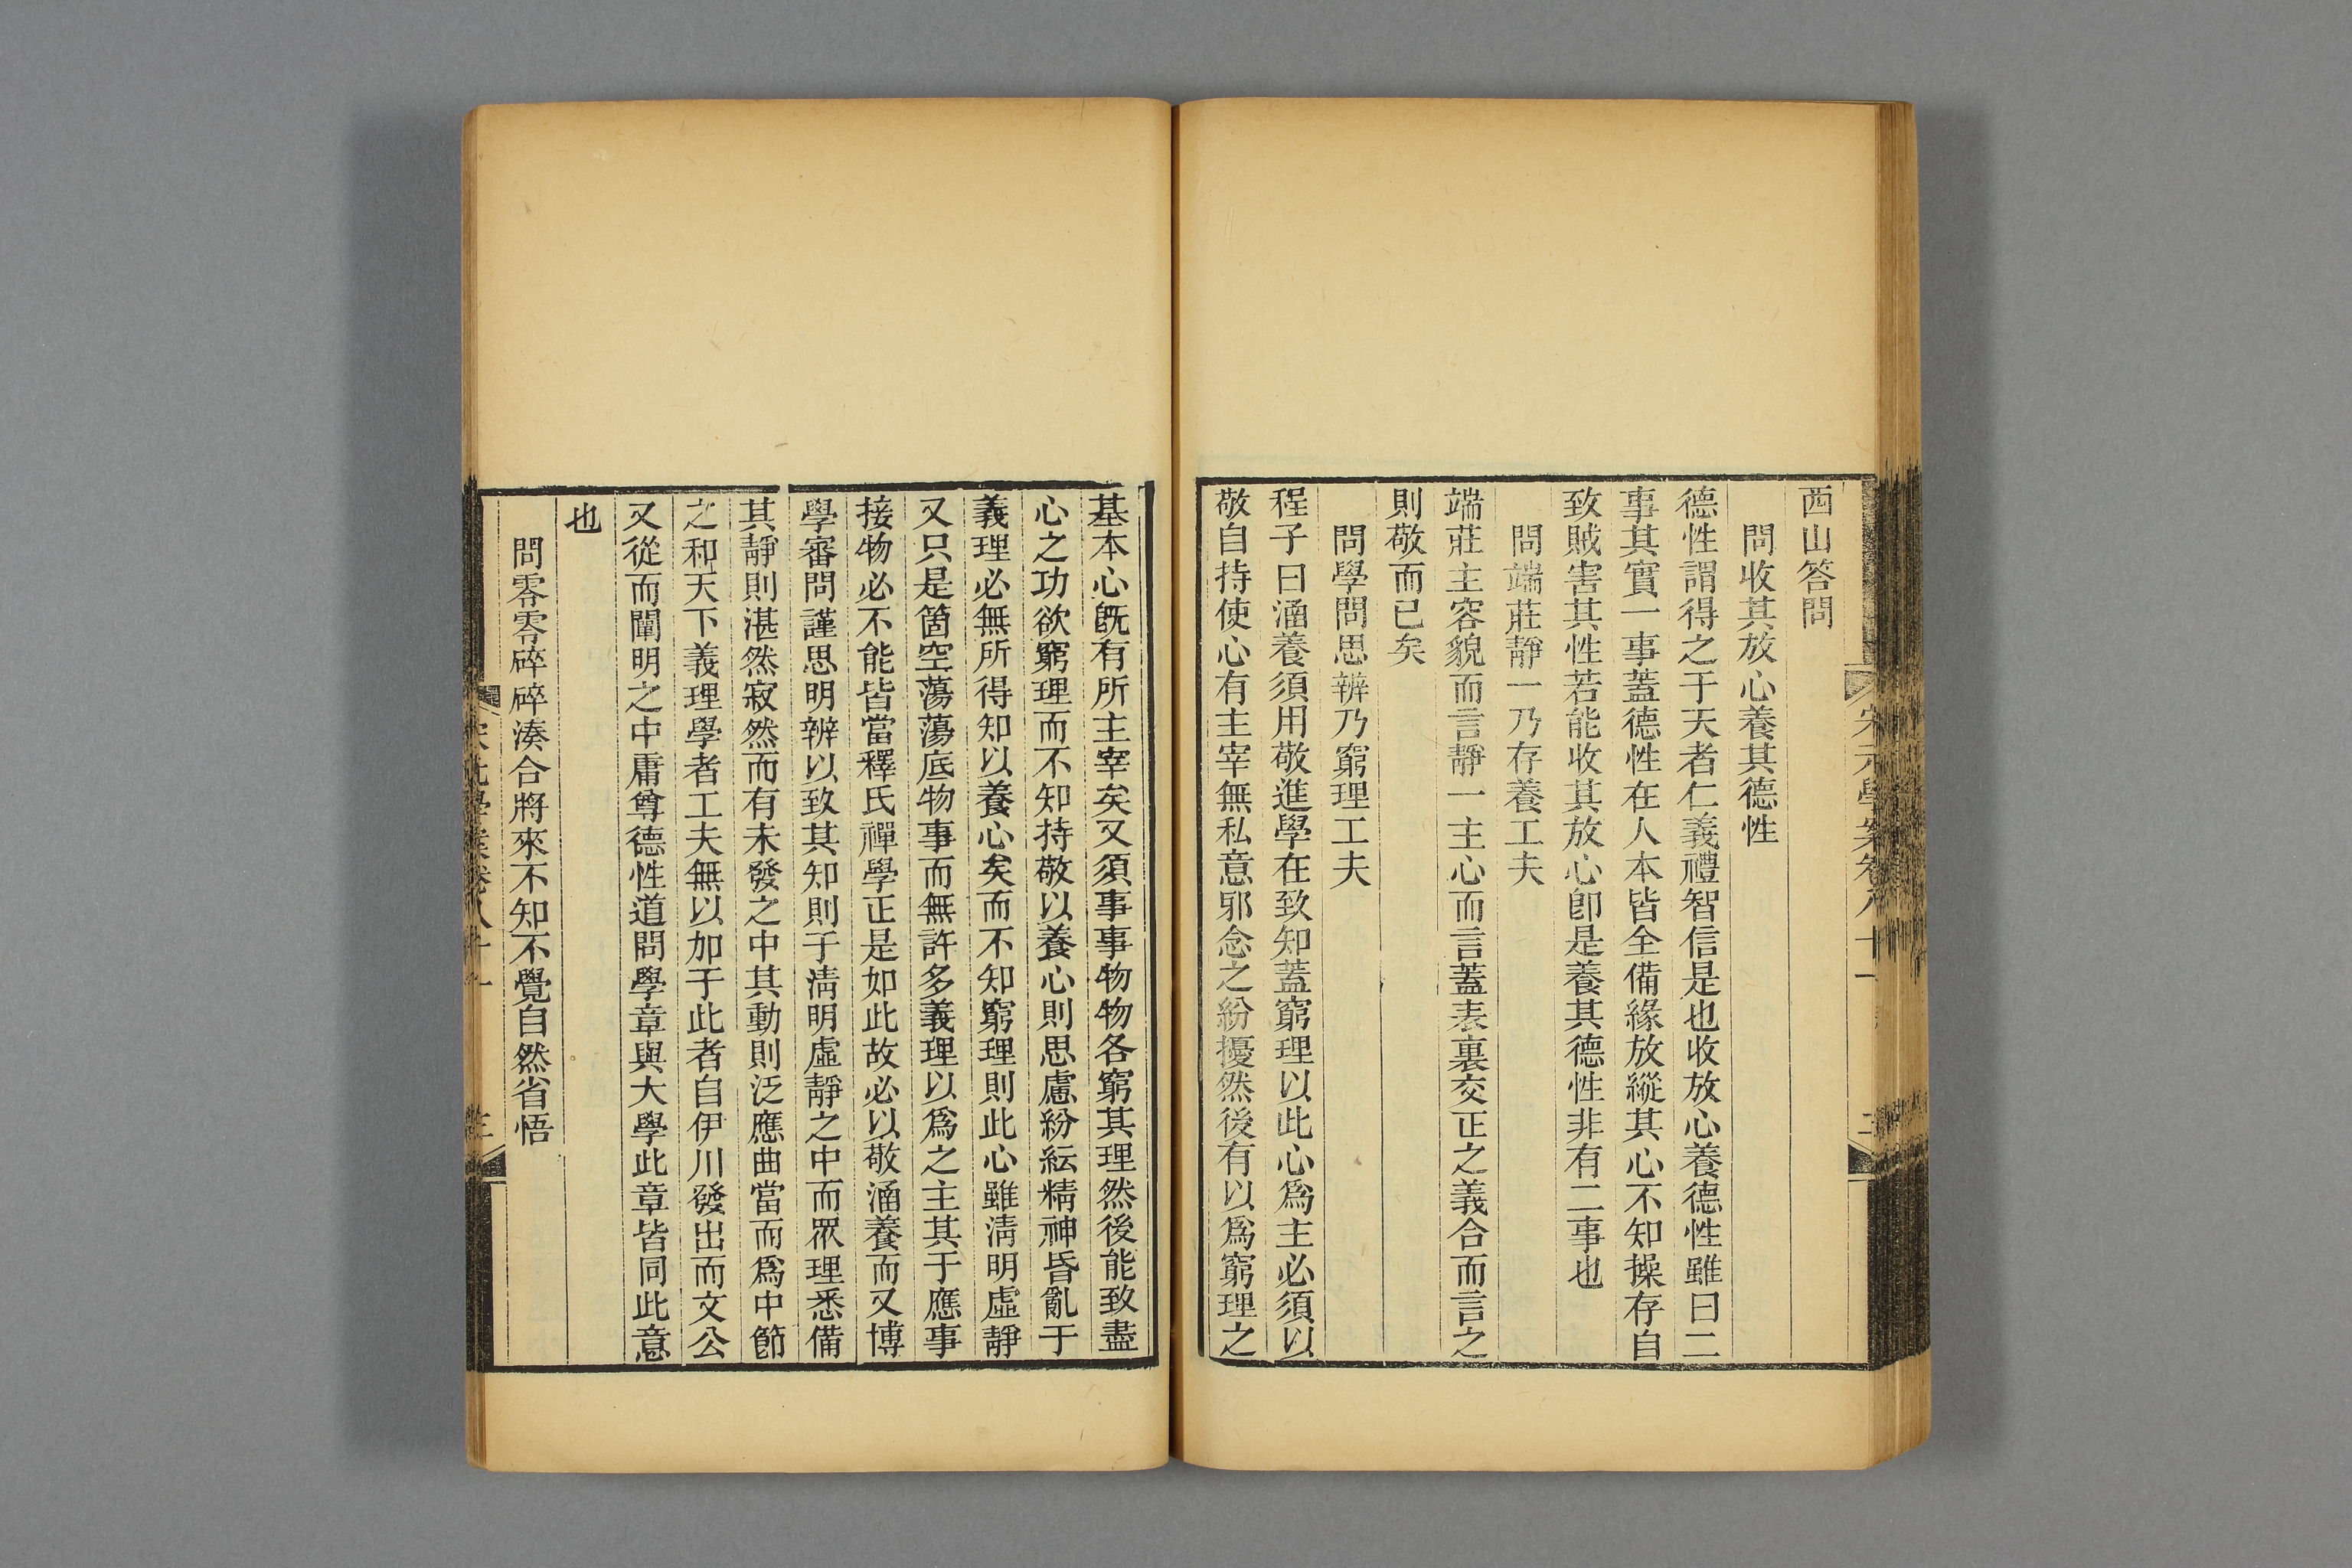 西山答問
問收其放心養其德性
德性謂得之于天者仁義禮智信是也收放心養德性雖曰二
事其實一事蓋德性在人本皆全備緣放縱其心不知操存自
致賊害其性若能收其放心卽是養其德性非有二事也
問端莊靜一乃存養工夫
端莊主容貌而言靜一主心而言蓋表裏交正之義合而言之
則敬而已矣
問學問思辨乃窮理工夫
程子曰涵養須用敬進學在致知蓋窮理以此心爲主必須以
敬自持使心有主宰無私意邪念之紛擾然後有以爲窮理之
基本心旣有所主宰矣又須事事物物各窮其理然後能致盡
心之功欲窮理而不知持敬以養心則思慮紛紜精神昏亂于
義理必無所得知以養心矣而不知窮理則此心雖淸明虛靜
又只是箇空蕩蕩底物事而無許多義理以爲之主其于應事
接物必不能皆當釋氏禪學正是如此故必以敬涵養而又博
學審問謹思明辨以致其知則于淸明虛靜之中而眾理悉備
其靜則湛然寂然而有未發之中其動則泛應曲當而爲中節
之和天下義理學者工夫無以加于此者自伊川發出而文公
又從而闡明之中庸尊德性道問學章與大學此章皆同此意
也
問零零碎碎湊合將來不知不覺自然省悟
宋元學案卷八十一